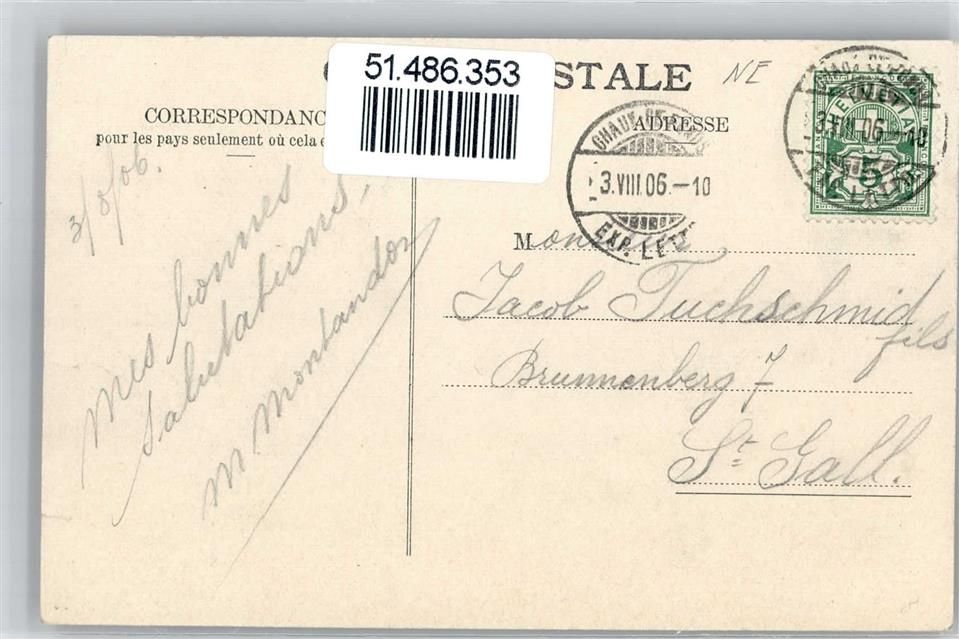 51.486.353
STALE
NE
CORRESPONDANC
pour les pays seulement où cela e
ADRESSE
3.VIII.06.-10
EXP. LET
3.VIII.06.-10
5
3/8/06.
Mes bonnes
Salutations,
M Montandon
Monsieur
Jacob Tuchschmid
fils
Brunnenberg 7
St. Gall.